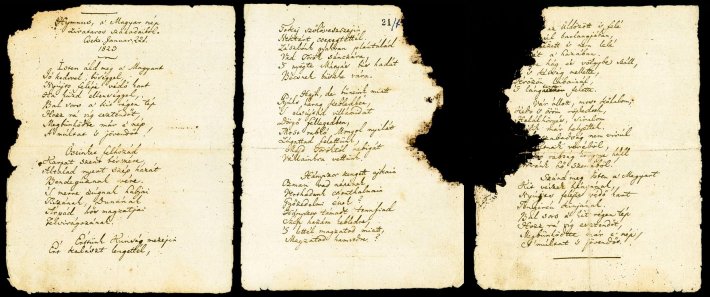 Hymnus, a' Magyar nép
zivataros századaiból.
Cseke, Januar. 22d.
1823
Isten áldd meg a' Magyart
Jó kedvvel, bőséggel,
Nyújts feléje védő kart
Ha küzd ellenséggel,
Bal sors a' kit régen tép
Hozz rá víg esztendőt,
Megbűnhödte már a' nép
A' multat 's jövendőt!
Őseinket felhozád
Kárpát szent bérczére,
Általad nyert szép hazát
Bendegúznak vére.
'S merre zúgnak habjai
Tiszának, Dunának
Árpád hős magzatjai
Felvirágozának.
Értünk Kunság mezein
Ért kalászt lengettél,
21/
Tokaj szőlővesszein
Nektárt csepegtettél.
Zászlónk gyakran plántálád
Vad Török sánczára,
'S nyögte Mátyás bús hadát
Bécsnek büszke vára.
Hajh, de bűneink miatt
Gyúlt harag kebledben,
'S elsújtád villámidat
Dörgő fellegedben,
Most rabló Mongol nyilát
Zúgattad felettünk,
Majd Töröktől rabigát
Vállainkra vettünk.
Hányszor zengett ajkain
Ozman vad népének
Vert hadunk csonthalmain
Győzedelmi ének!
Hányszor támadt tenfiad
Szép hazám kebledre,
'S lettél magzatod miatt,
Magzatod hamvedre?
üldözött 's felé
barlangjában,
nézett 's nem lelé
a' hazában,
hág és völgybe száll,
's kétség mellette,
Vérözön lábainál,
'S lángtenger felette.
Vár állott, most kőhalom,
Kedv 's öröm röpkedtek,
Halálhörgés, siralom
már helyettek.
szabadság nem virúl
véréből,
rabság könnye hull
hő szeméből!
Szánd meg Isten a' Magyart
Kit vészek hányának,
Nyújts feléje védő kart
Tengerén kínjának.
Bal sors a' kit régen tép
Hozz rá víg esztendőt,
Megbűnhödte már a' nép
A' multat 's jövendőt.